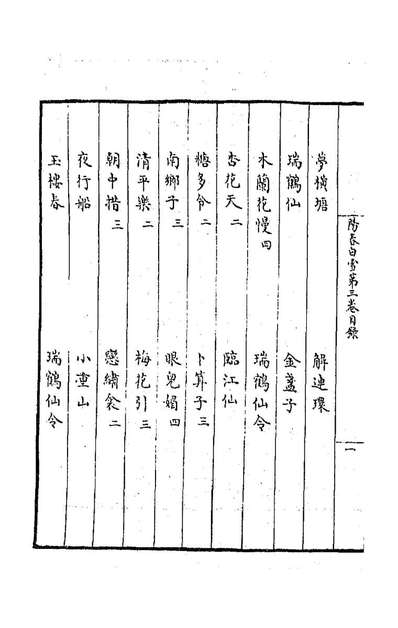 陽春白雪第三卷目錄
一
夢橫塘　解連環
瑞鶴仙　金盞子
木蘭花慢四　瑞鶴仙令
杏花天二　臨江仙
糖多令二　卜算子三
南鄉子三　眼兒媚四
清平樂二　梅花引三
朝中措三　戀繡衾二
夜行船　小重山
玉樓春　瑞鶴仙令